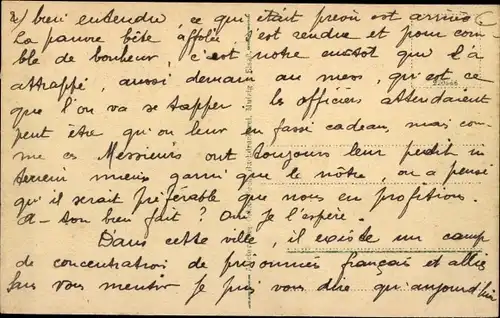 2/ bien entendu, ce qui était prévu est arrivé
La pauvre bête affolée s'est rendue et pour com
ble de bonheur, c'est notre cuistot que l'a
attrappé, aussi demain au mess, qu'est ce
que l'on va se tapper. les officiers attendaient
peut être qu'on leur en fasse cadeau, mais com
me ces Messieurs ont toujours leur petit in
terieur mieux garni que le nôtre, on a pensé
qu'il serait préférable que nous en profitions.
a-t-on bien fait ? Oui je l'espère.
Dans cette ville, il existe un camp
de concentration de prisonniers français et alliés
sans vous mentir je puis vous dire qu'aujourd'hui